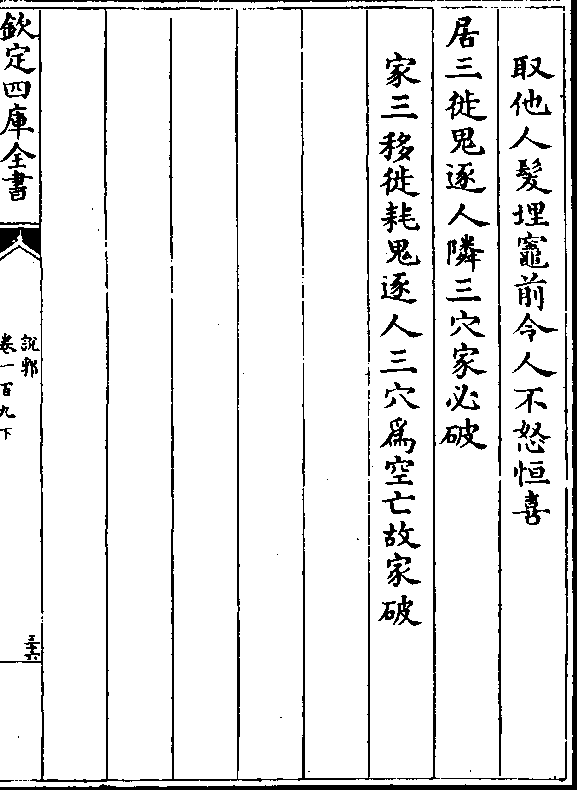 取他人髮埋竈前令人不怒恒喜
居三徙鬼逐人隣三穴家必破
家三移徙耗鬼逐人三穴爲空亡故家破
欽定四庫全書
說郛
卷一百九下
三十六